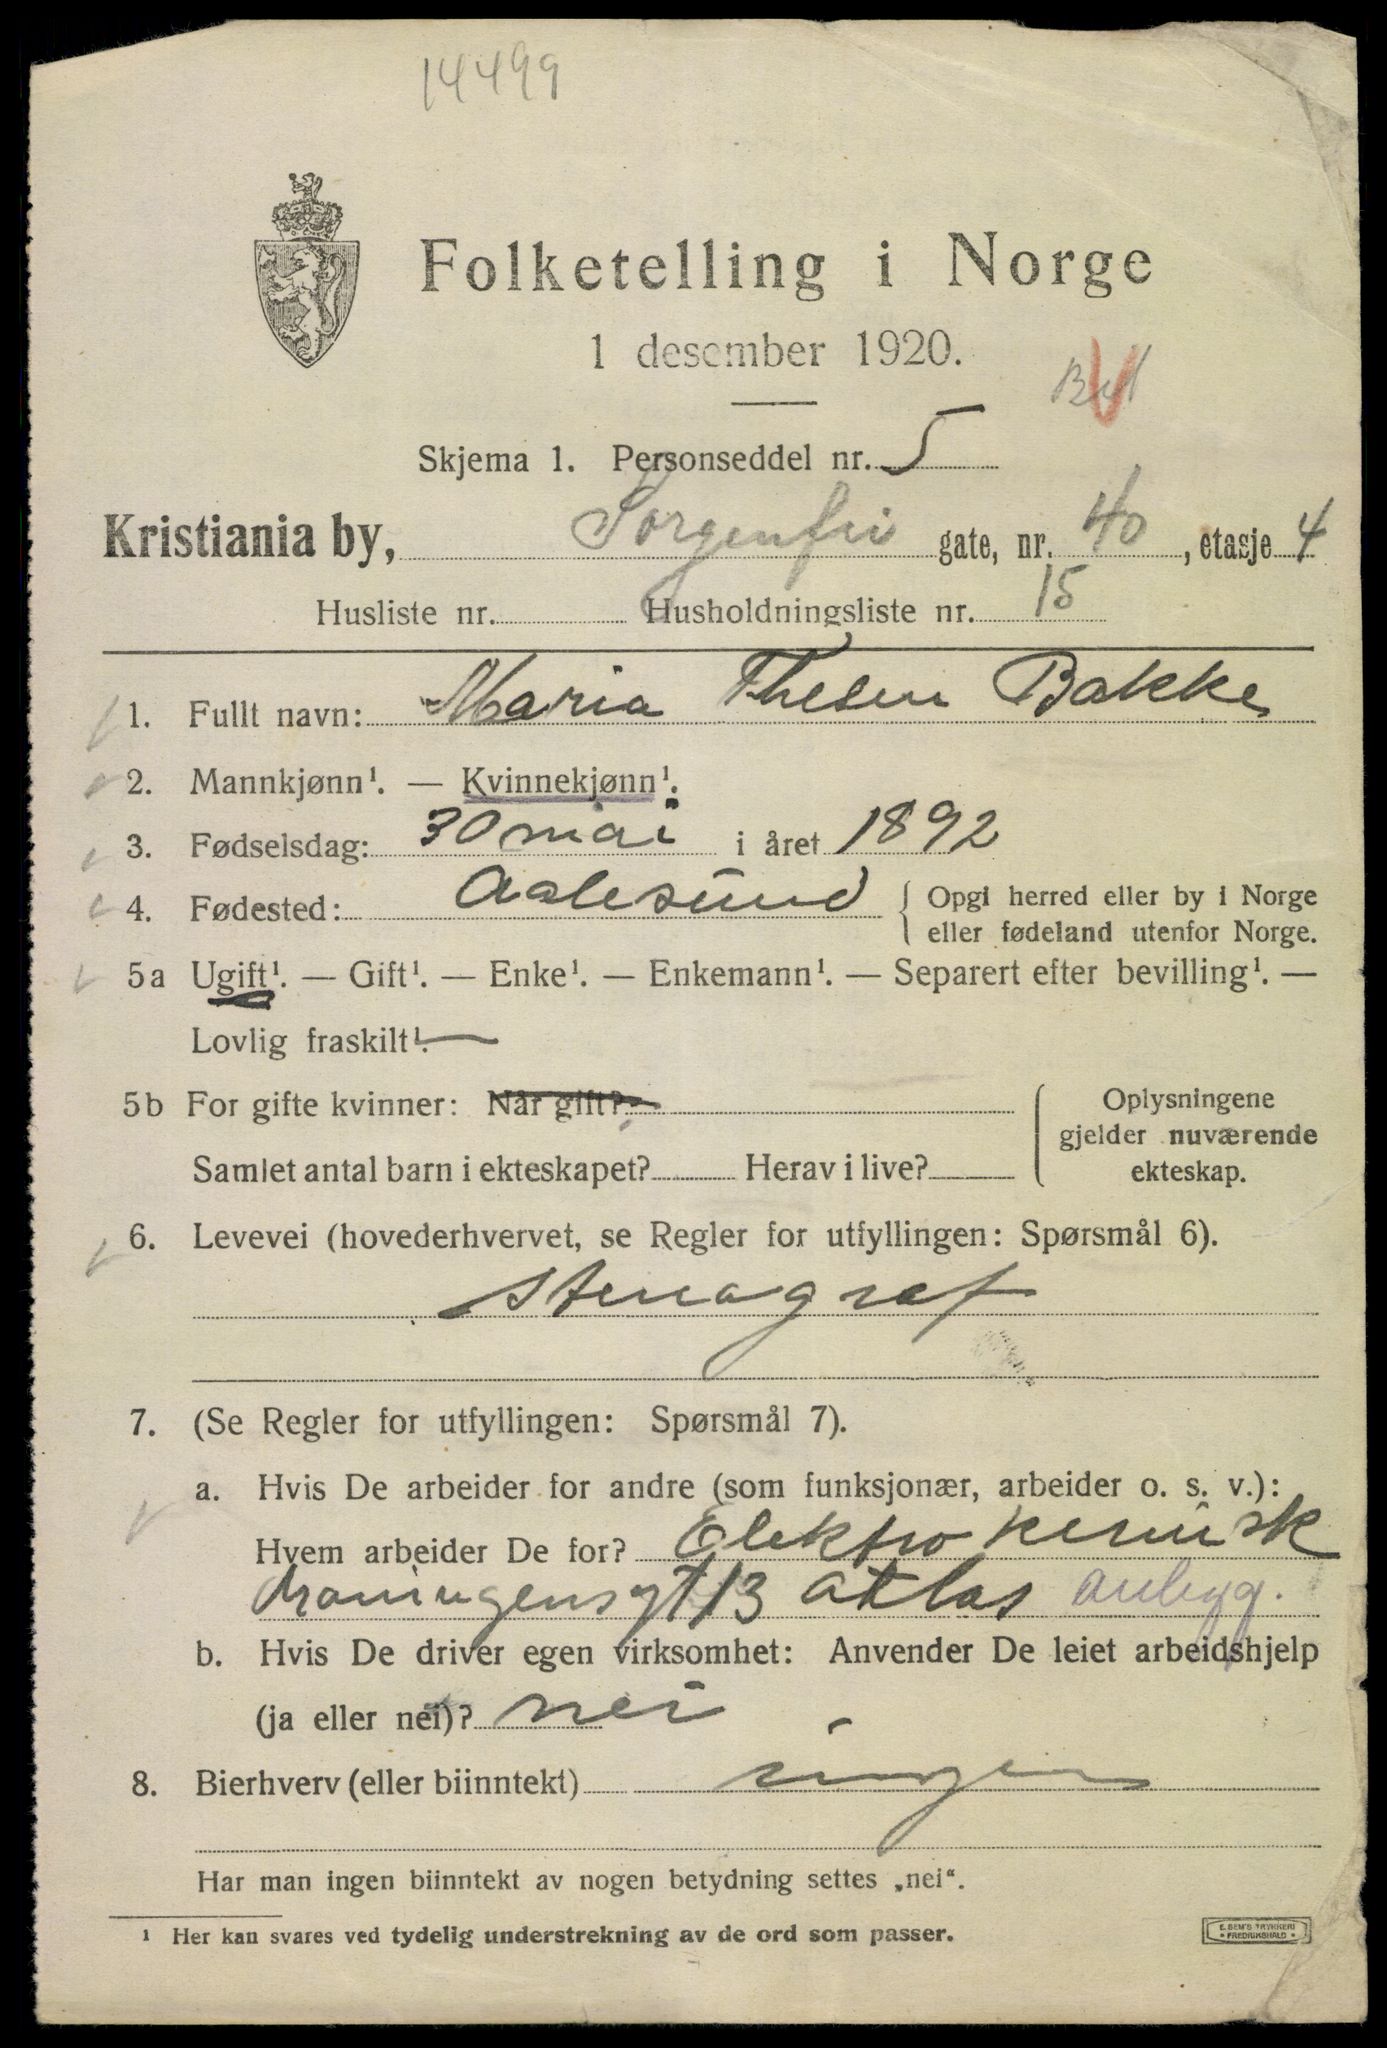 14499
Folketelling i Norge
1 desember 1920.
Skjema 1. Personseddel nr. 5
Kristiania by, Sorgenfri gate, nr. 40, etasje 4
Husliste nr. Husholdningsliste nr. 15
1. Fullt navn: Maria Thesen Bakke
2. Mannkjønn¹. — Kvinnekjønn¹.
3. Fødselsdag: 30 mai i året 1892
4. Fødested: Aalesund { Opgi herred eller by i Norge
eller fødeland utenfor Norge.
5a Ugift¹. — Gift¹. — Enke¹. — Enkemann¹. — Separert efter bevilling¹. —
Lovlig fraskilt¹.
5b For gifte kvinner: Når gift? Oplysningene
gjelder nuværende
Samlet antal barn i ekteskapet? Herav i live? ekteskap.
6. Levevei (hovederhvervet, se Regler for utfyllingen: Spørsmål 6).
Stenograf
7. (Se Regler for utfyllingen: Spørsmål 7).
a. Hvis De arbeider for andre (som funksjonær, arbeider o. s. v.):
Hvem arbeider De for? Elektrokemisk
Dronningensgt 13 Atlas
b. Hvis De driver egen virksomhet: Anvender De leiet arbeidshjelp
(ja eller nei)? nei
8. Bierhverv (eller biinntekt) ingen
Har man ingen biinntekt av nogen betydning settes „nei“.
¹ Her kan svares ved tydelig understrekning av de ord som passer.
E. SEM'S TRYKKERI
• FREDRIKSHALD •